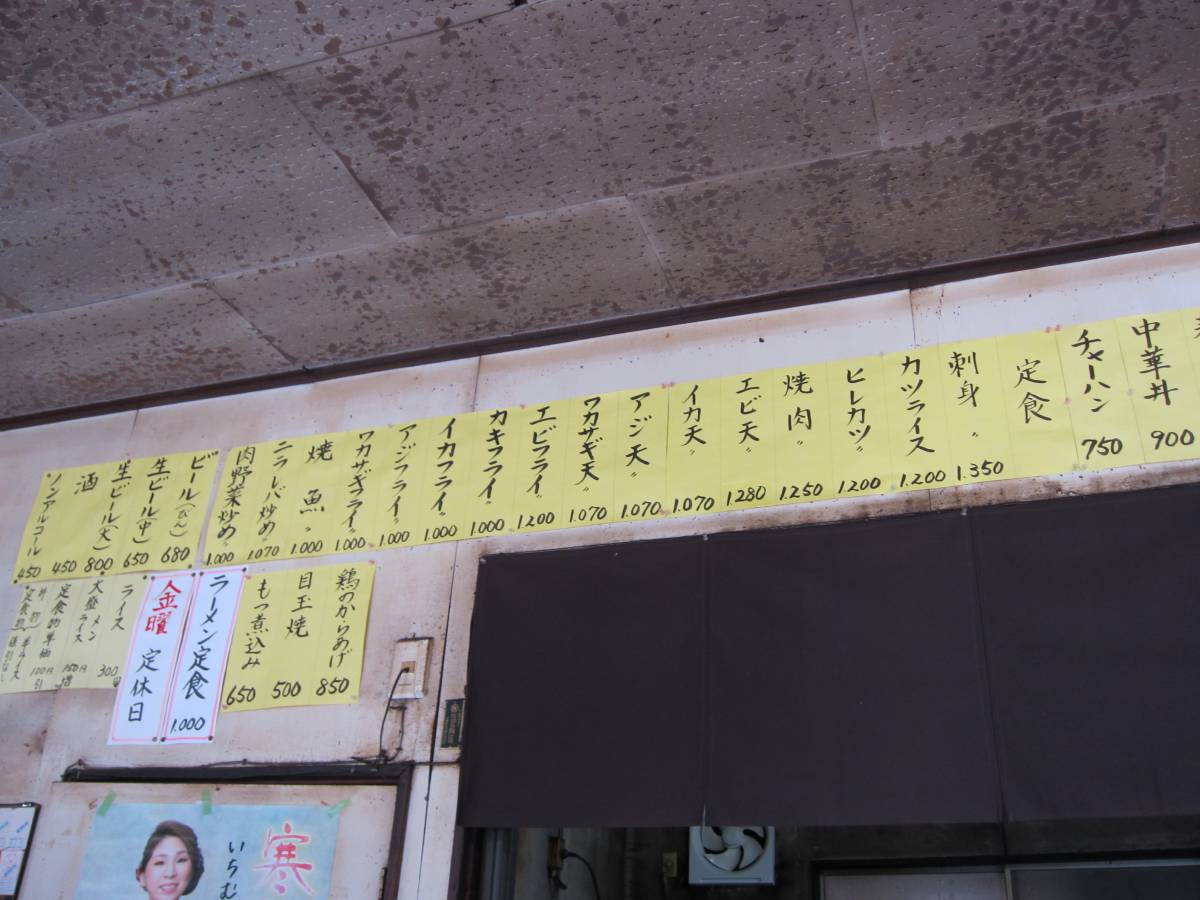 中華丼 900
チャーハン 750
定食
刺身 〃 1.350
カツライス 1.200
ヒレカツ〃 1200
焼肉〃 1.250
エビ天〃 1280
イカ天〃 1.070
アジ天〃 1.070
ワカサギ天〃 1.070
エビフライ〃 1200
カキフライ〃 1.000
イカフライ〃 1.000
アジフライ〃 1.000
ワカサギフライ〃 1.000
焼魚〃 1.000
ニラレバ炒め〃 1.070
肉野菜炒め〃 1.000
ビール(びん) 680
生ビール(中) 650
生ビール(大) 800
酒 450
ノンアルコール 450
鶏のからあげ 850
目玉焼 500
もつ煮込み 650
ラーメン定食 1.000
金曜 定休日
ライス
大盛 メン ライス 300円
定食物 150円増
丼物 半価 100円引
寒
いちむ